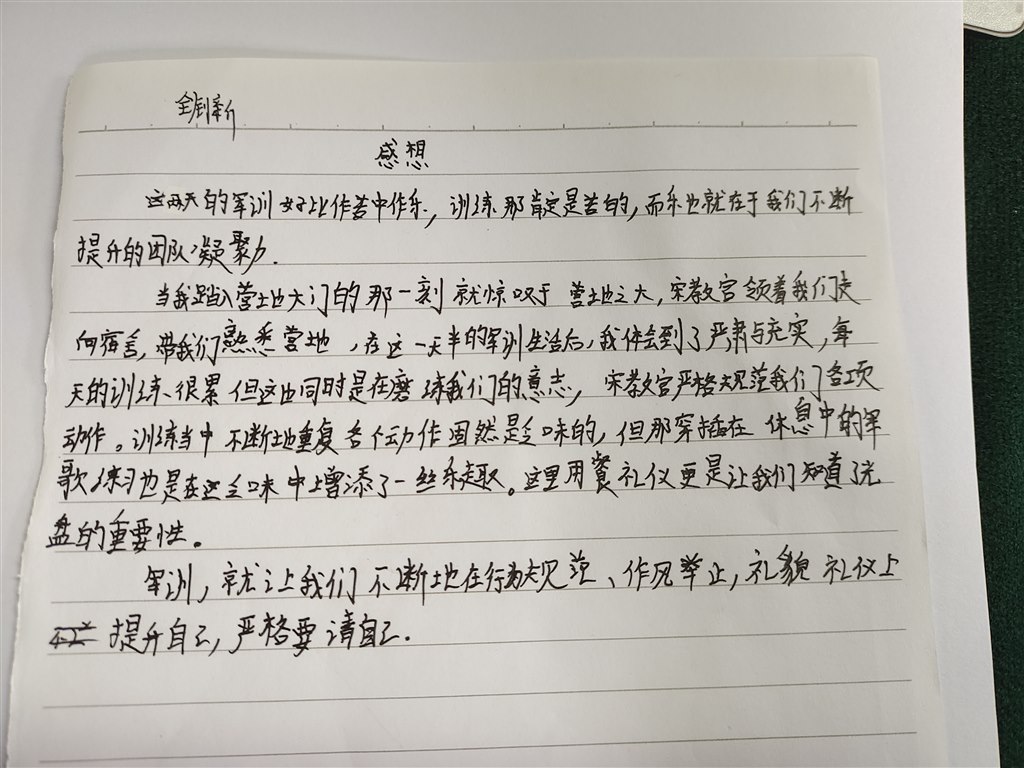 感想
这两天的军训好比作苦中作乐,训练那肯定是苦的,而乐也就在于我们不断
提升的团队凝聚力.
当我踏入营地大门的那一刻就惊叹于营地之大,宋教官领着我们走
向宿舍,带我们熟悉营地,在这一天半的军训生活后,我体会到了严肃与充实,每
天的训练很累但这也同时是在磨练我们的意志,宋教官严格规范我们各项
动作。训练当中不断地重复各个动作固然是乏味的,但那穿插在休息中的军
歌练习也是在这乏味中上增添了一丝乐趣。这里用餐礼仪更是让我们知道了光
盘的重要性。
军训,就让我们不断地在行为规范、作风举止,礼貌礼仪上
提升自己,严格要请自己.